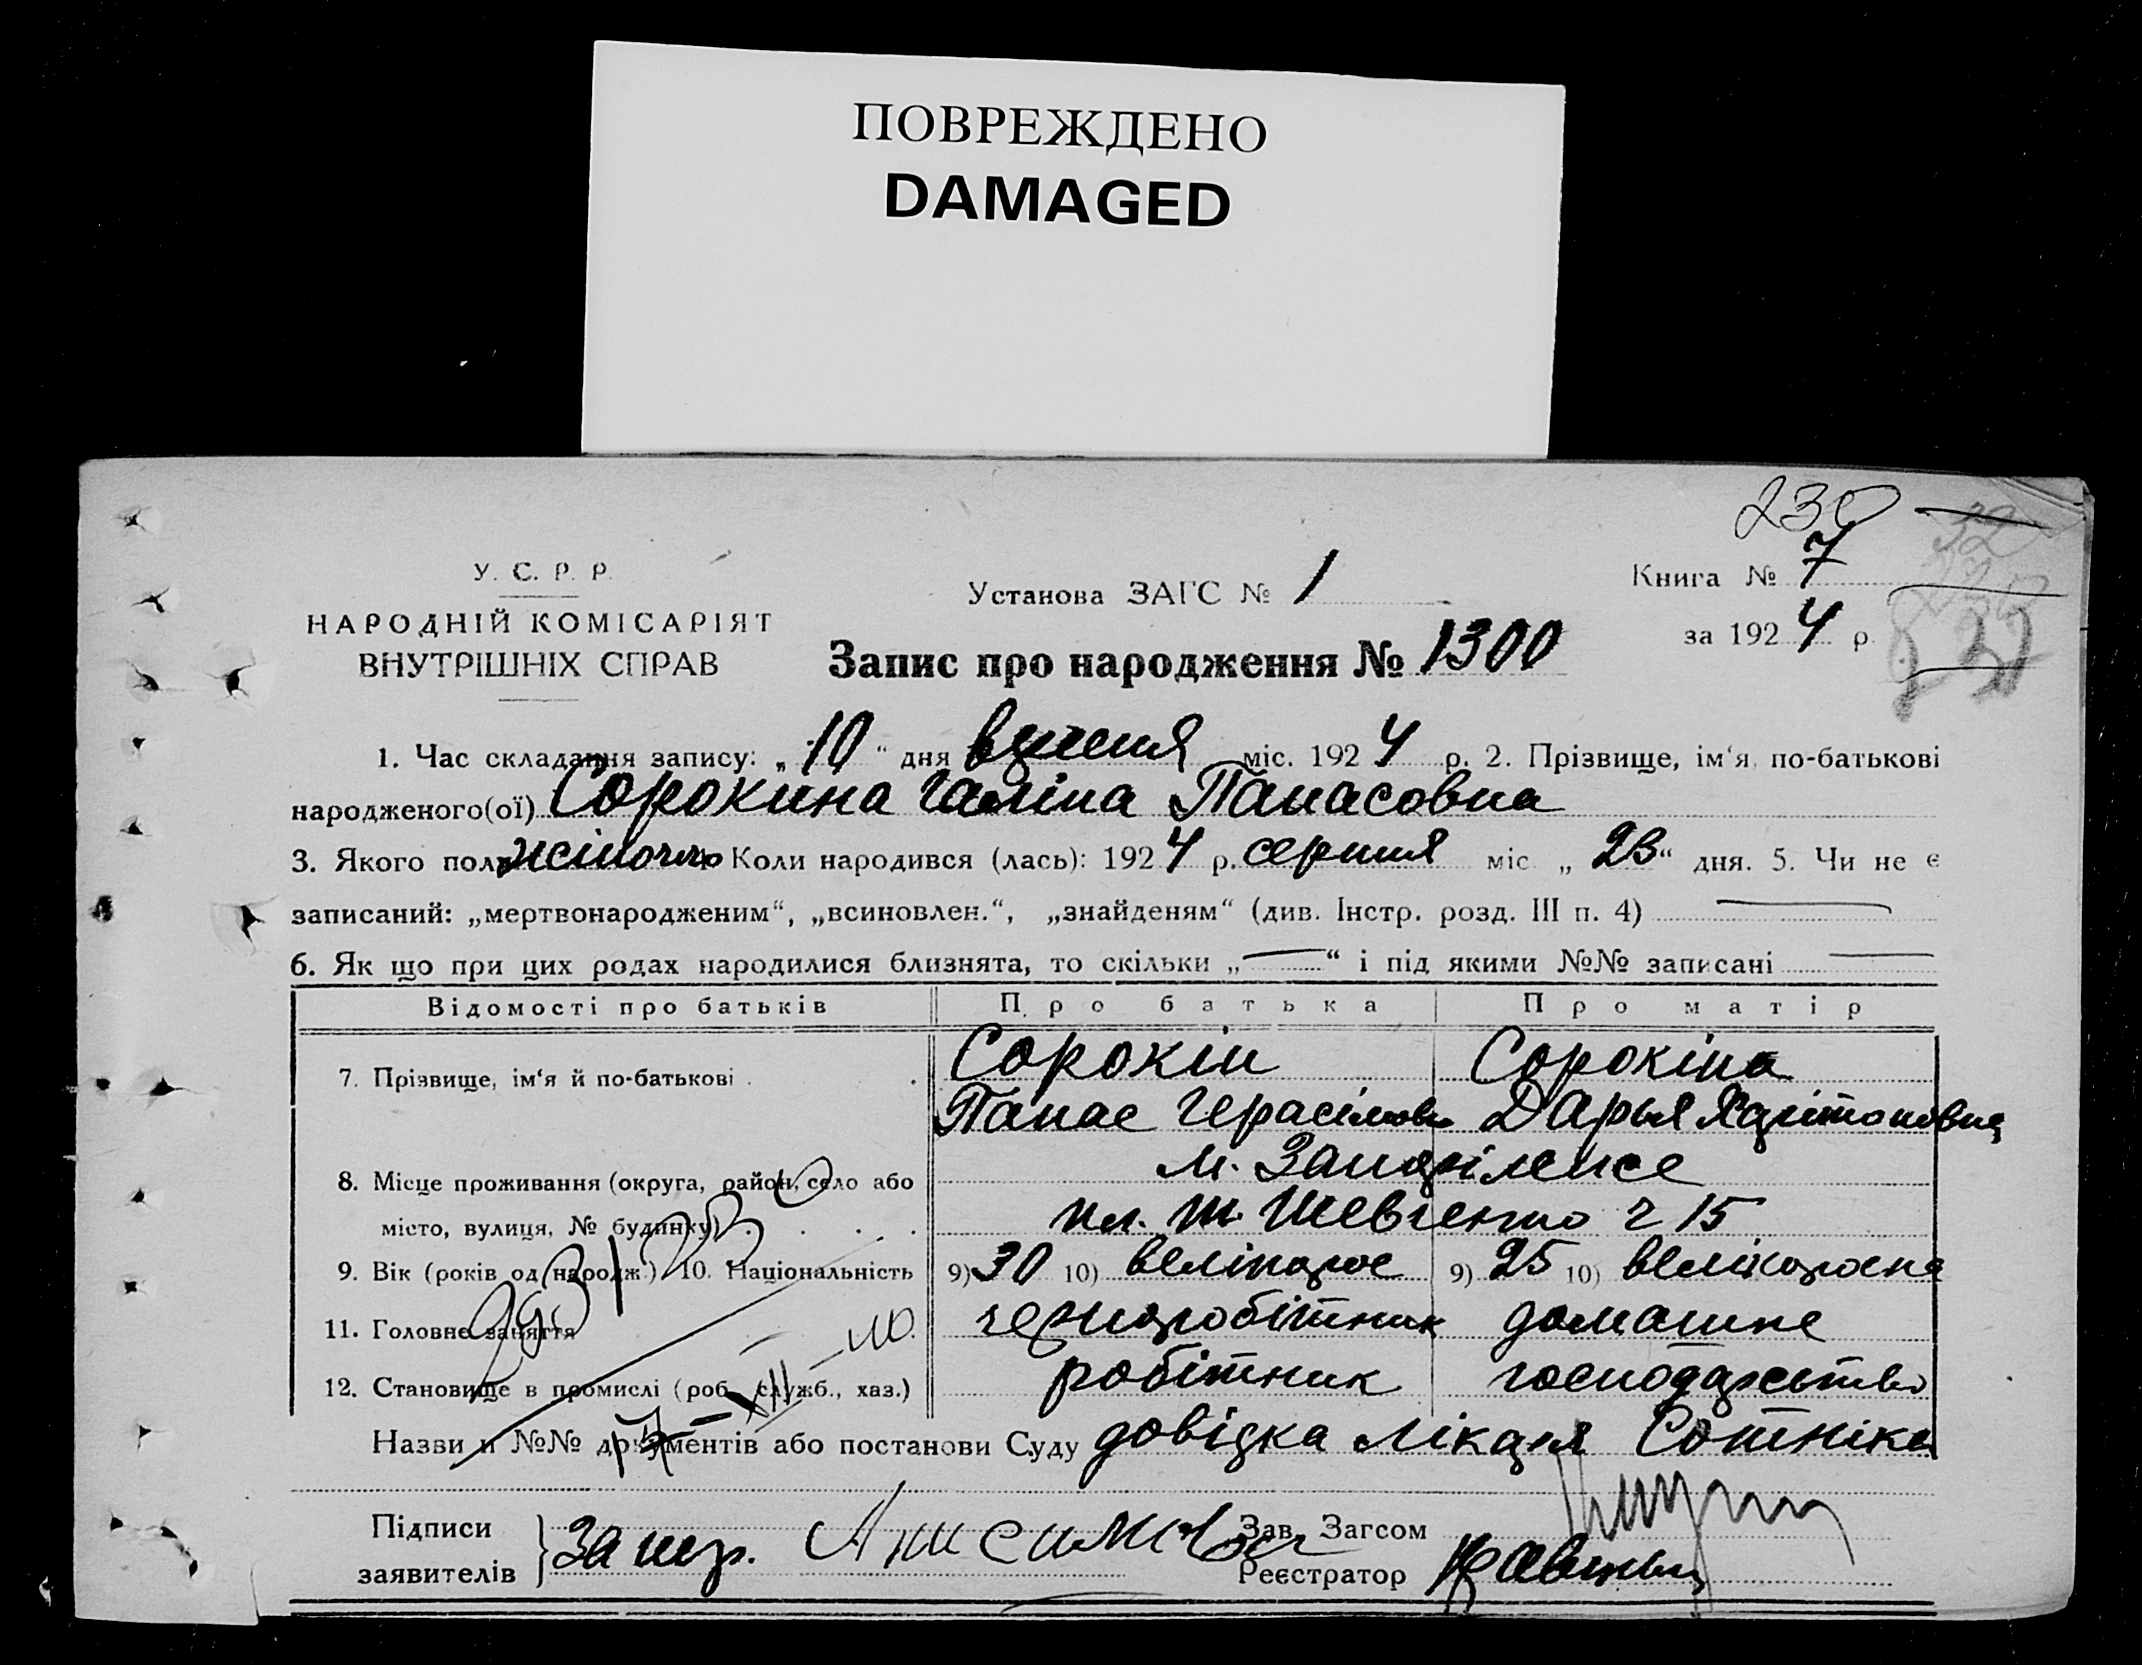 ПОВРЕЖДЕНО
DAMAGED
230
У. С. Р. Р.
НАРОДНІЙ КОМІСАРІЯТ
ВНУТРІШНІХ СПРАВ
Установа ЗАГС № 1
Книга № 7
за 1924 р.
Запис про народження № 1300
1. Час складання запису: „10“ дня вересня міс. 1924 р. 2. Прізвище, ім‘я по-батькові
народженого(ої) Сорокина Галіна Панасовна
3. Якого пола жіночого Коли народився (лась): 1924 р. серпня міс. „23“ дня. 5. Чи не є
записаний: „мертвонародженим“, „всиновлен.“, „знайденям“ (див. Інстр. розд. III п. 4)
6. Як що при цих родах народилися близнята, то скільки „—“ і під якими №№ записані —
Відомості про батьків Про батька Про матір
7. Прізвище, ім‘я й по-батькові . . Сорокін Сорокіна
Панас Герасімов Дарья Харітоновна
8. Місце проживання (округа, район, село або м.
місто, вулиця, № будинку) . . . . Шевченко ч 15
9. Вік (років од народж.) 10. Національність 9) 30 10) велікорос 9) 25 10) велікороска
11. Головне заняття черноробітник домашне
12. Становище в промислі (роб., служб., хаз.) робітник господарьство
Назви и №№ документів або постанови Суду довідка лікаря Сотніка
Підписи
заявителів
За нпр. Анисимова
Зав. Загсом
Реєстратор Кравец